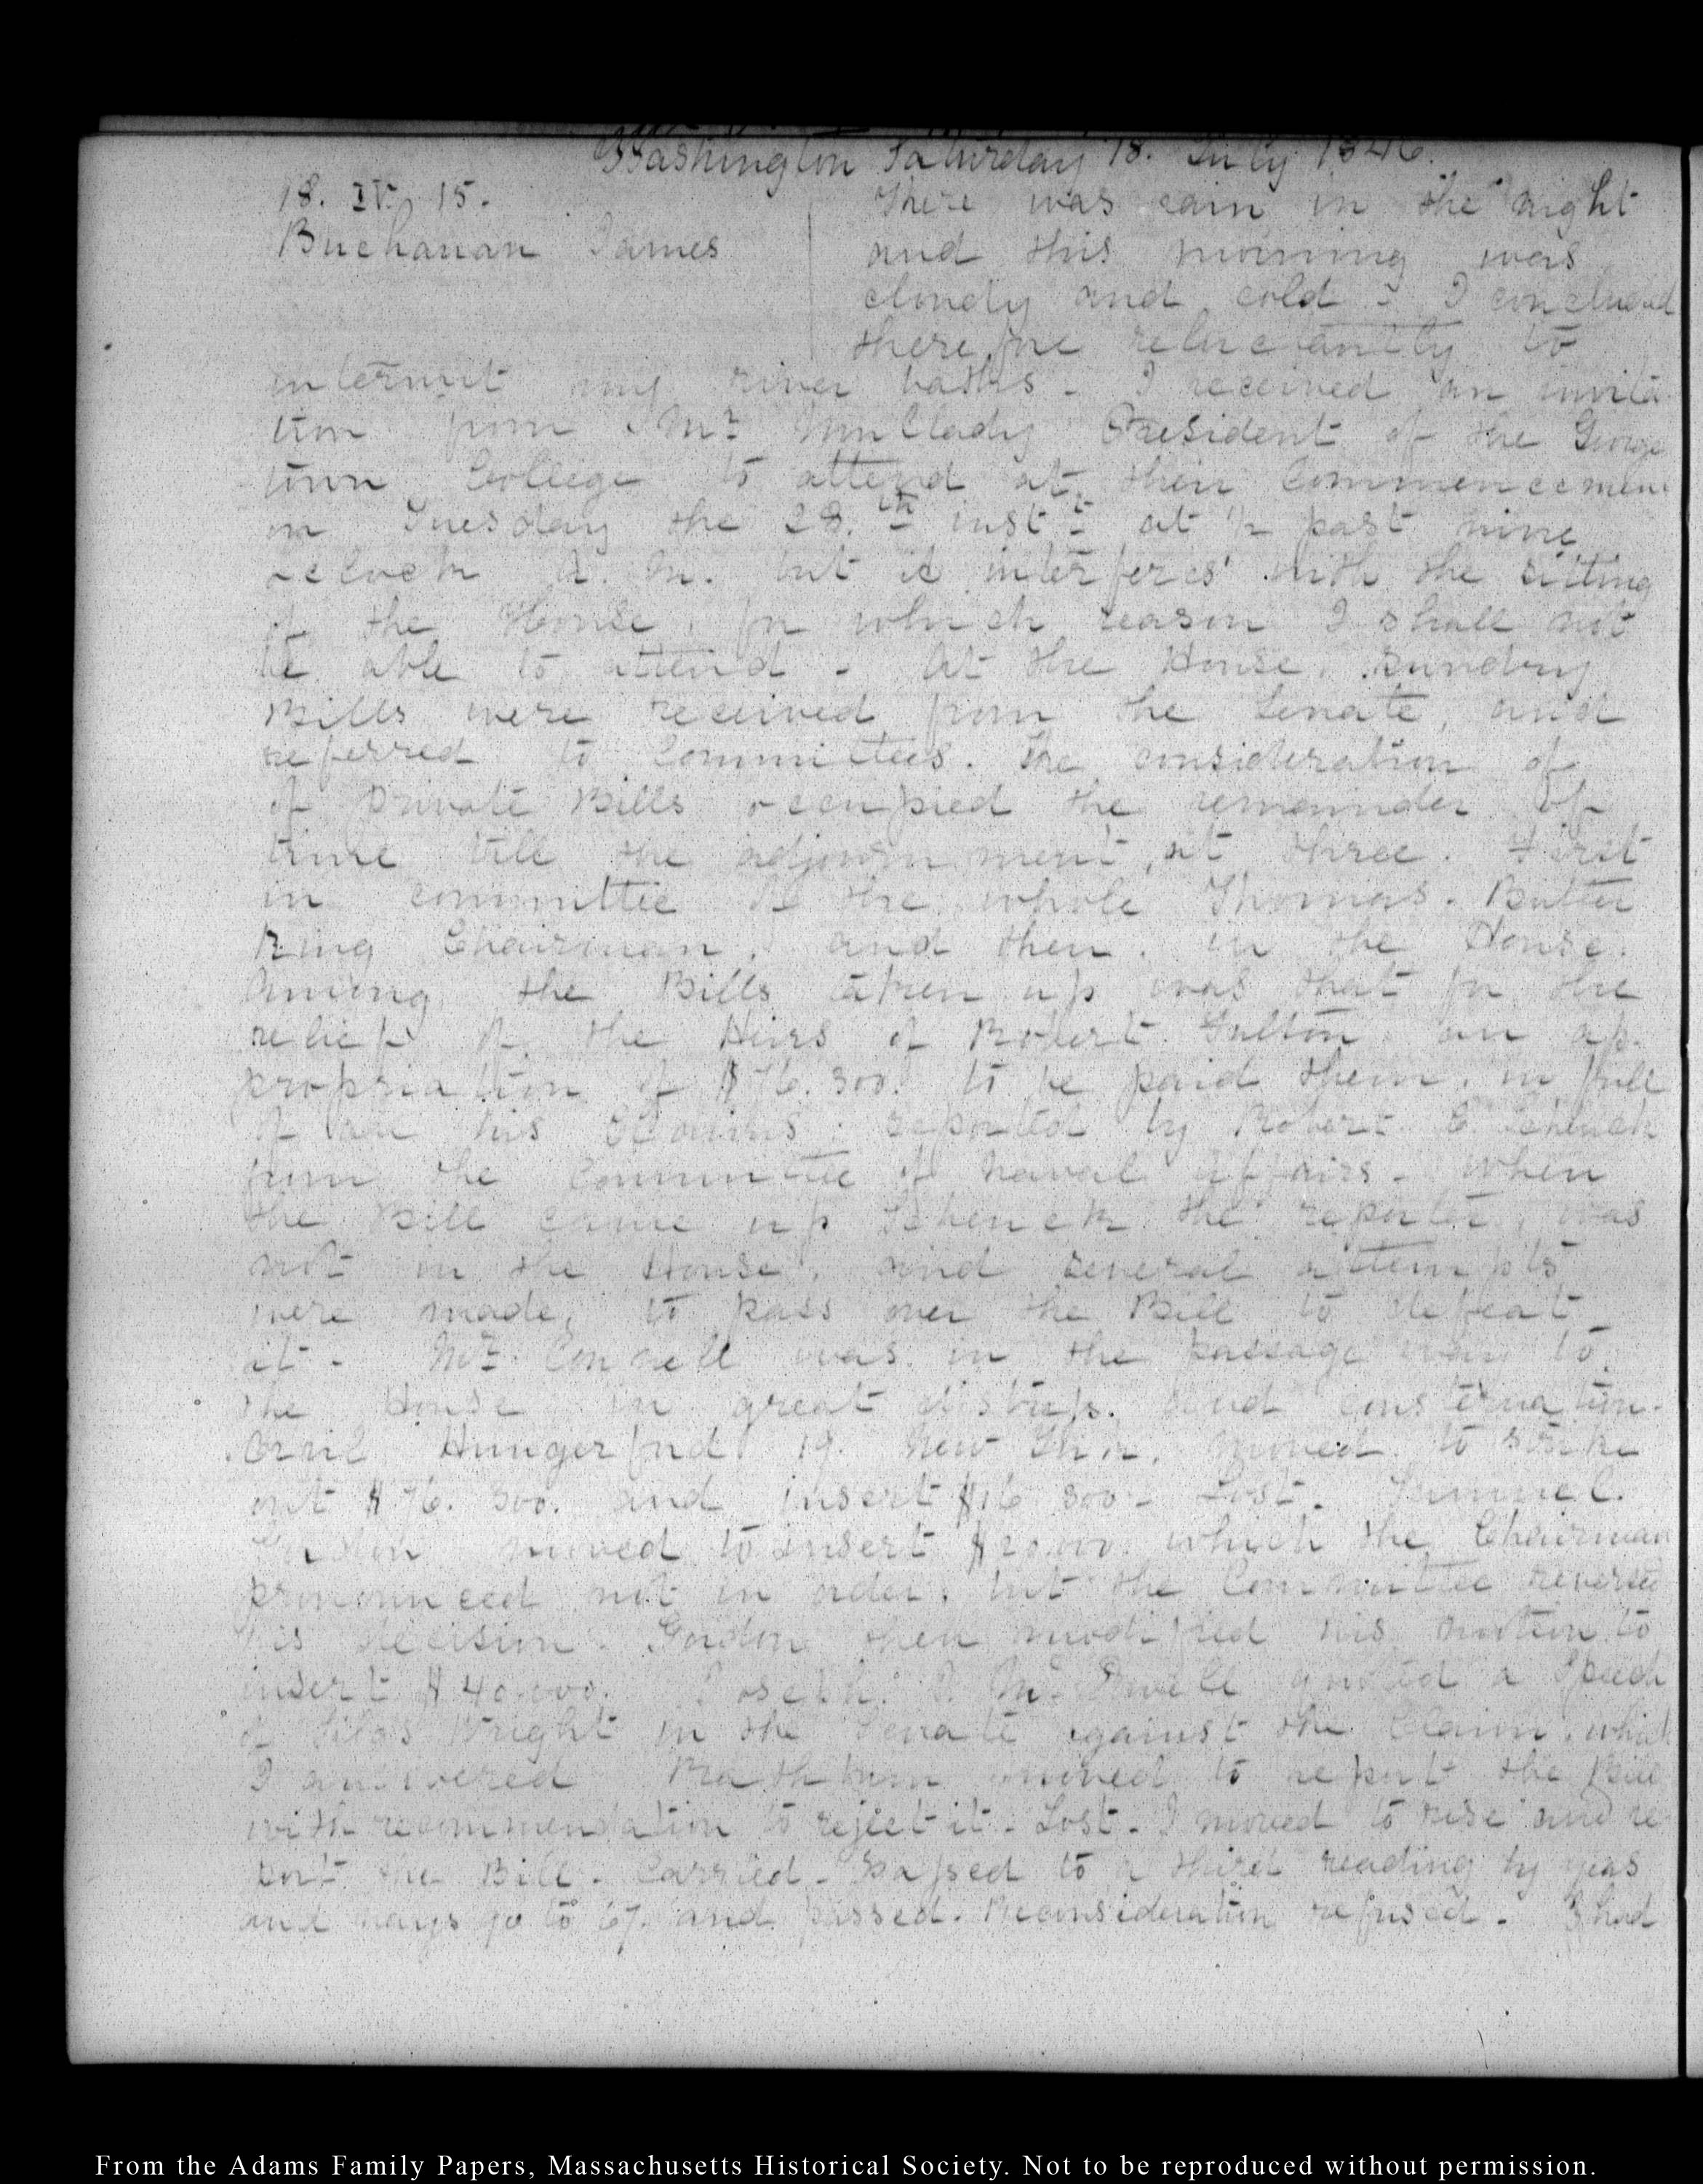 Washington Saturday 18. July 1846.
18. IV. 15.
Buchanan James
There was rain in the night
and this morning was
cloudy and cold - I concluded
therefore reluctantly to
intermit my river baths - I received an invita
tion from Mr. MCladly President of the George
town College to attend at their Commencement
on Tuesday the 28.th inst.t at ½ past nine
oclock A. M. but it interferes with the sitting
of the House, for which reason I shall not
be able to attend - At the House, sundry
Bills were received from the Senate, and
referred to Committees. The consideration of
of private Bills occupied the remainder of
time till the adjournment, at three. First
in committee of the whole Thomas. Butler
King Chairman, and then in the House.
Among the Bills taken up was that for the
relief of the Heirs of Robert Fulton an ap-
propriation of $76.300. to be paid them, in full
of all his claims. reported by Robert C. Schenck
from the Committee of naval affairs - When
the Bill came up Schenck the reporter, was
not in the House, and several attempts
were made, to pass over the Bill to defeat
it - Mr. was in the passage way to
the House in great distress and consternation.
Orvil Hungerford 19. New York, moved to strike
out $76.300. and insert $16 300 - Lost. Samuel.
Gordon moved to insert $20.000. which the Chairman
pronounced not in order, but the Committee reversed
his decision. Gordon then modified his motion to
insert $40.000. Joseph. J. McDowell quoted a Speech
of Silas Wright in the Senate against the Claim, which
I answered Rathbun moved to report the Bill
with recommendation to reject it - Lost - I moved to rise and re
port the Bill - Carried - Passed to a third reading by yeas
and nays 90 to 67. and passed. Reconsideration refused - I had
From the Adams Family Papers, Massachusetts Historical Society. Not to be reproduced without permission.